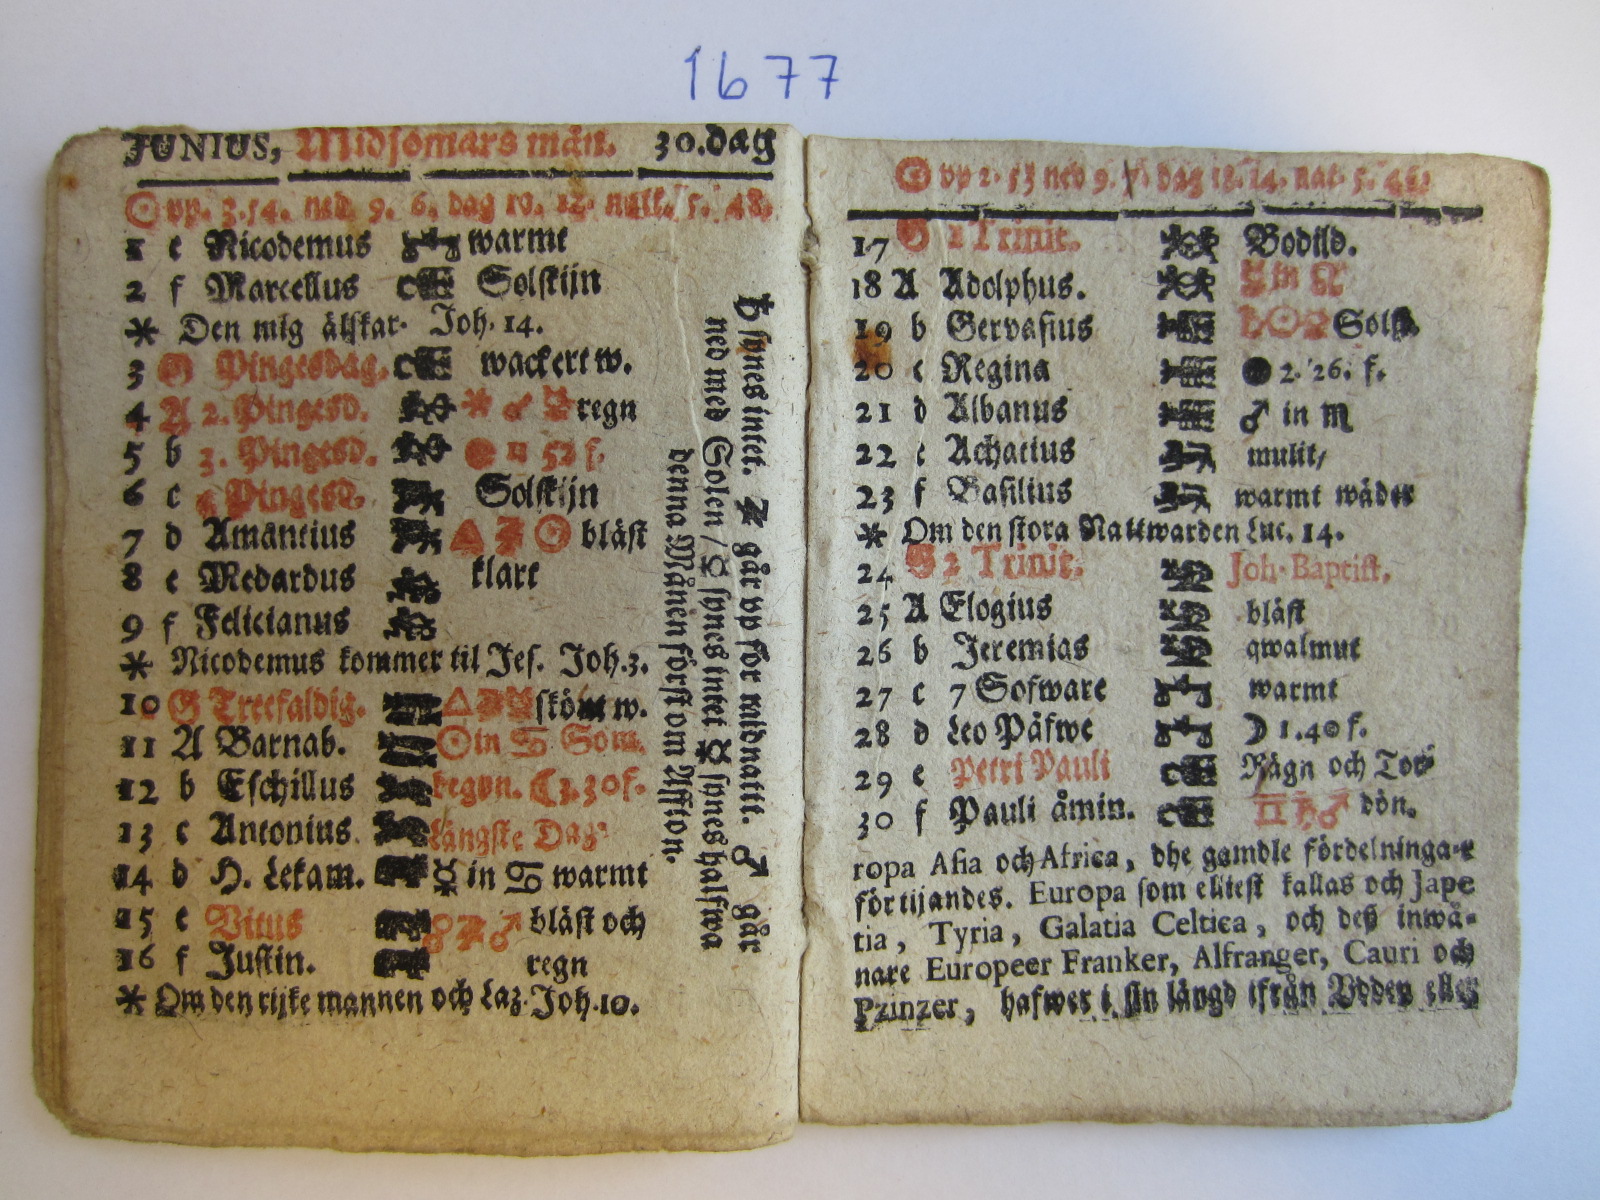 1677
JUNIUS, Midsomars mån. 30.dag
☉ vp. 3.54. ned 9. 6. dag 10. 12. natt. 5. 48.
1 e Nicodemus warmt
2 f Marcellus Solskijn
* Den mig älskar. Joh. 14.
3 G Pingesdag. wackert w.
4 A 2. Pingesd. * ♂ ☿ regn
5 b 3. Pingesd. 52 f.
6 c 4 Pingesd. Solskijn
7 d Amantius △ ♃ ☉ bläst
8 e Medardus klart
9 f Felicianus
* Nicodemus kommer til Jes. Joh.3.
10 G Treefaldig. △ skönt w.
11 A Barnab. ☉ in ♋ Som.
12 b Eschillus begyn. ☾ 3.30 f.
13 c Antonius längste Dag
14 d H. Lekam. ☿ in ♋ warmt
15 e Vitus ♀ ♃ ♂ bläst och
16 f Justin. regn
* Om den rijke mannen och Laz. Joh.10.
♄ synes intet. ♃ går vp för midnatt. ♂ går
ned med Solen / ♀ synes intet ☿ synes halfwa
denna Månen först om Affton.
☉ vp 2. 53 ned 9. dag 18. 14. nat. 5. 46.
17 G 1 Trinit. Bodild.
18 A Adolphus. ☿ in ♌
19 b Gervasius Solsk.
20 c Regina ● 2. 26. f.
21 d Albanus ♂ in ♏
22 e Achatius mulit/
23 f Basilius warmt wäder
* Om den stora Nattwarden Luc. 14.
24 G 2 Trinit. Joh. Baptist.
25 A Elogius bläst
26 b Jeremias qwalmut
27 c 7 Sofware warmt
28 d Leo Påfwe ☽ 1.40 f.
29 e Petri Pauli Rägn och Tor
30 f Pauli åmin. □ ♄ ♂ dön.
ropa Asia och Africa, dhe gamble fördelningar
förtijandes. Europa som elitest kallas och Jape
tia, Tyria, Galatia Celtica, och deß inwå-
nare Europeer Franker, Alfranger, Cauri och
Pzinzer, hafwer i sin längd ifrån Vdden eller